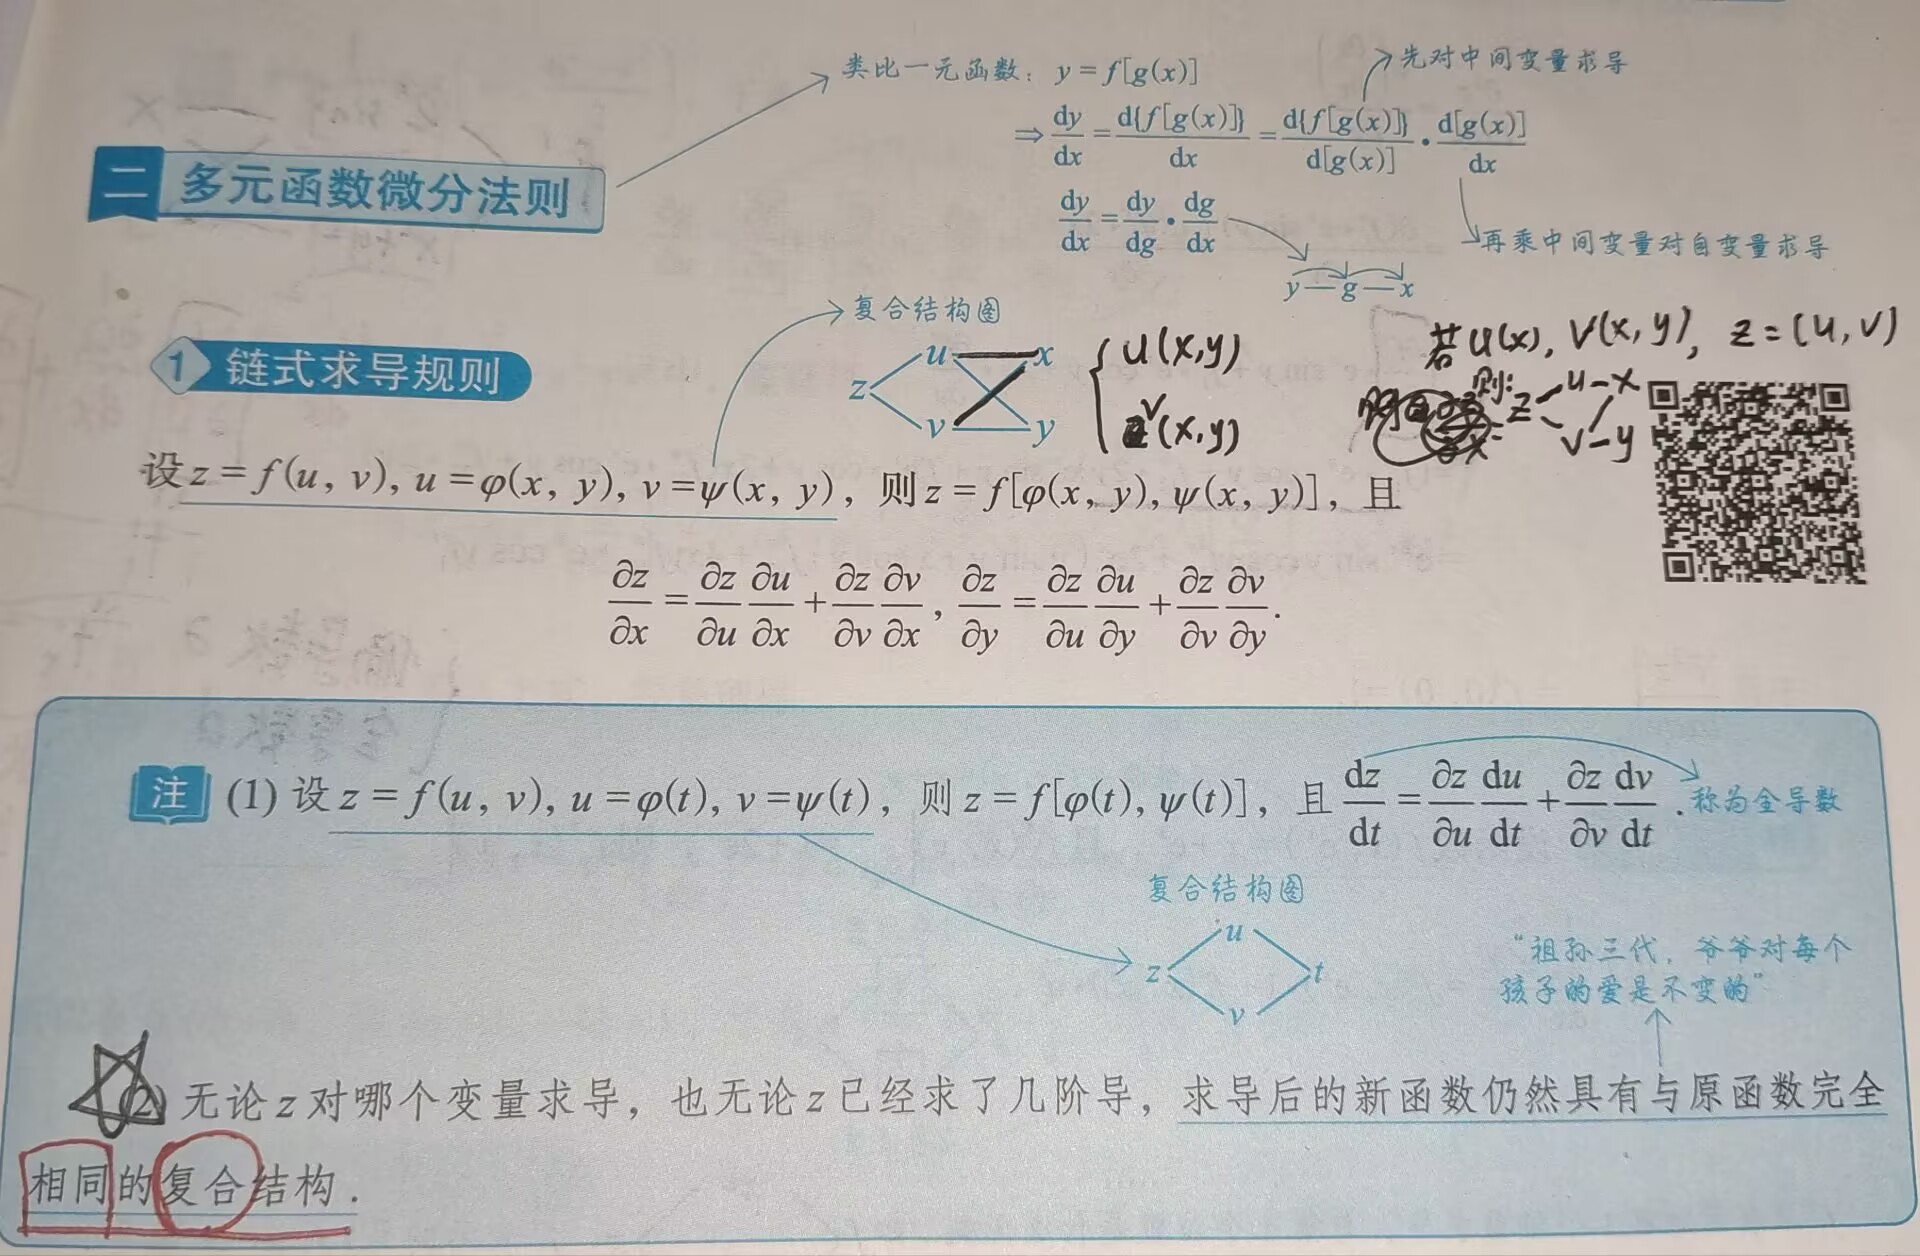 类比一元函数: y = f[g(x)]
先对中间变量求导
⇒ dy/dx = d{f[g(x)]}/dx = d{f[g(x)]}/d[g(x)] · d[g(x)]/dx
二 多元函数微分法则
dy/dx = dy/dg · dg/dx
再乘中间变量对自变量求导
y — g — x
复合结构图
1 链式求导规则
z u v x y
u(x,y)
v(x,y)
若u(x), v(x,y), z=(u,v)
则: z u-x
v-y
设 z = f(u, v), u = φ(x, y), v = ψ(x, y), 则 z = f[φ(x, y), ψ(x, y)], 且
∂z/∂x = ∂z/∂u ∂u/∂x + ∂z/∂v ∂v/∂x, ∂z/∂y = ∂z/∂u ∂u/∂y + ∂z/∂v ∂v/∂y.
注 (1) 设 z = f(u, v), u = φ(t), v = ψ(t), 则 z = f[φ(t), ψ(t)], 且 dz/dt = ∂z/∂u du/dt + ∂z/∂v dv/dt. 称为全导数
复合结构图
z u v t
“祖孙三代, 爷爷对每个
孩子的爱是不变的”
(2) 无论 z 对哪个变量求导, 也无论 z 已经求了几阶导, 求导后的新函数仍然具有与原函数完全
相同的复合结构.